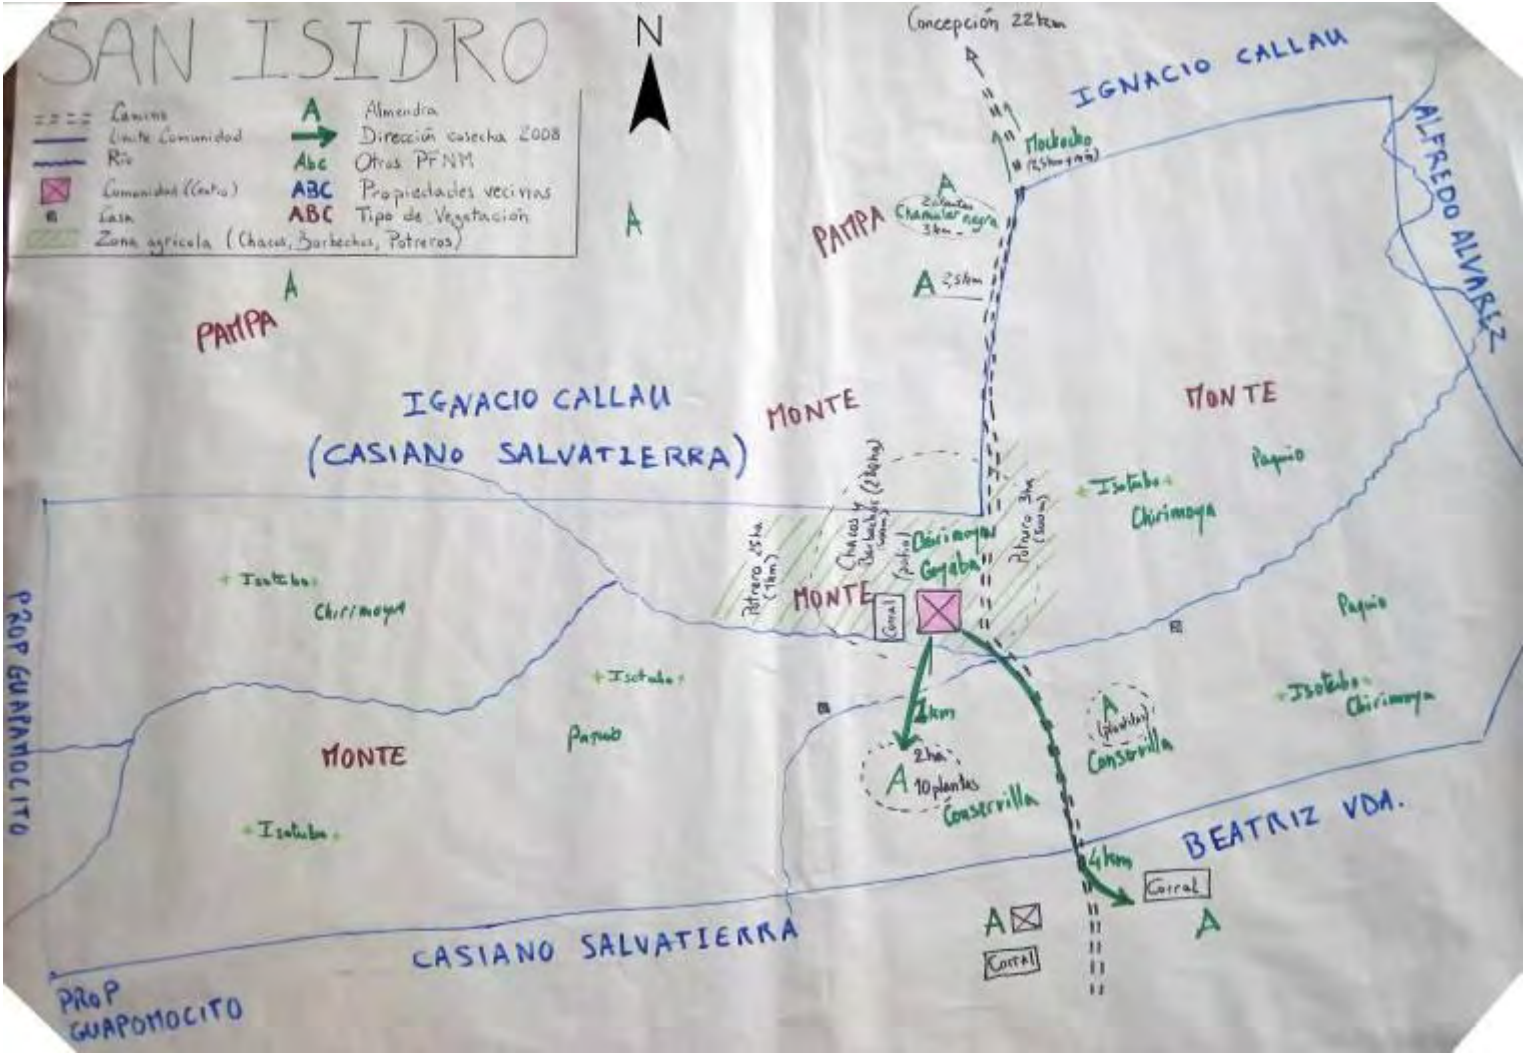 SAN ISIDRO
N
Concepción 22km
Camino
Límite Comunidad
Río
Comunidad (Centro)
Casa
Zona agrícola (Chacos, Barbechos, Potreros)
A Almendra
Dirección cosecha 2008
Abc Otros PFNM
ABC Propiedades vecinas
ABC Tipo de Vegetación
IGNACIO CALLAU
ALFREDO ALVAREZ
Mochocho
A
2 plantas
Chamular negra
3km
PAMPA
A 2,5km
A
A
PAMPA
IGNACIO CALLAU
(CASIANO SALVATIERRA)
MONTE
MONTE
Paquio
+ Isotubo +
Chirimoya
Potrero 25ha
(1km)
Chacos y
Barbechos
(patio)
Chirimoya
Guyaba
Potrero 3ha
(500m)
MONTE
Corral
PROP GUAPAMOCITO
+ Isotubo +
Chirimoya
+ Isotubo +
Paquio
MONTE
+ Isotubo +
Paquio
+ Isotubo +
Chirimoya
1km
2ha
A 10 plantas
Conservilla
A
(plantitas)
Conservilla
BEATRIZ VDA.
4km
Corral
A
A
Corral
CASIANO SALVATIERRA
PROP
GUAPOMOCITO